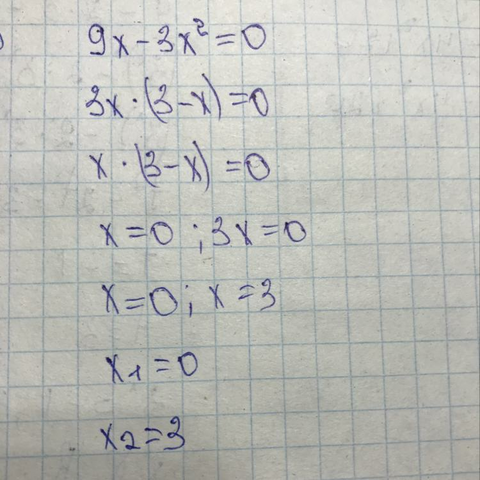 9x-3x²=0
3x·(3-x)=0
x·(3-x)=0
x=0;3x=0
x=0; x=3
x₁=0
x₂=3